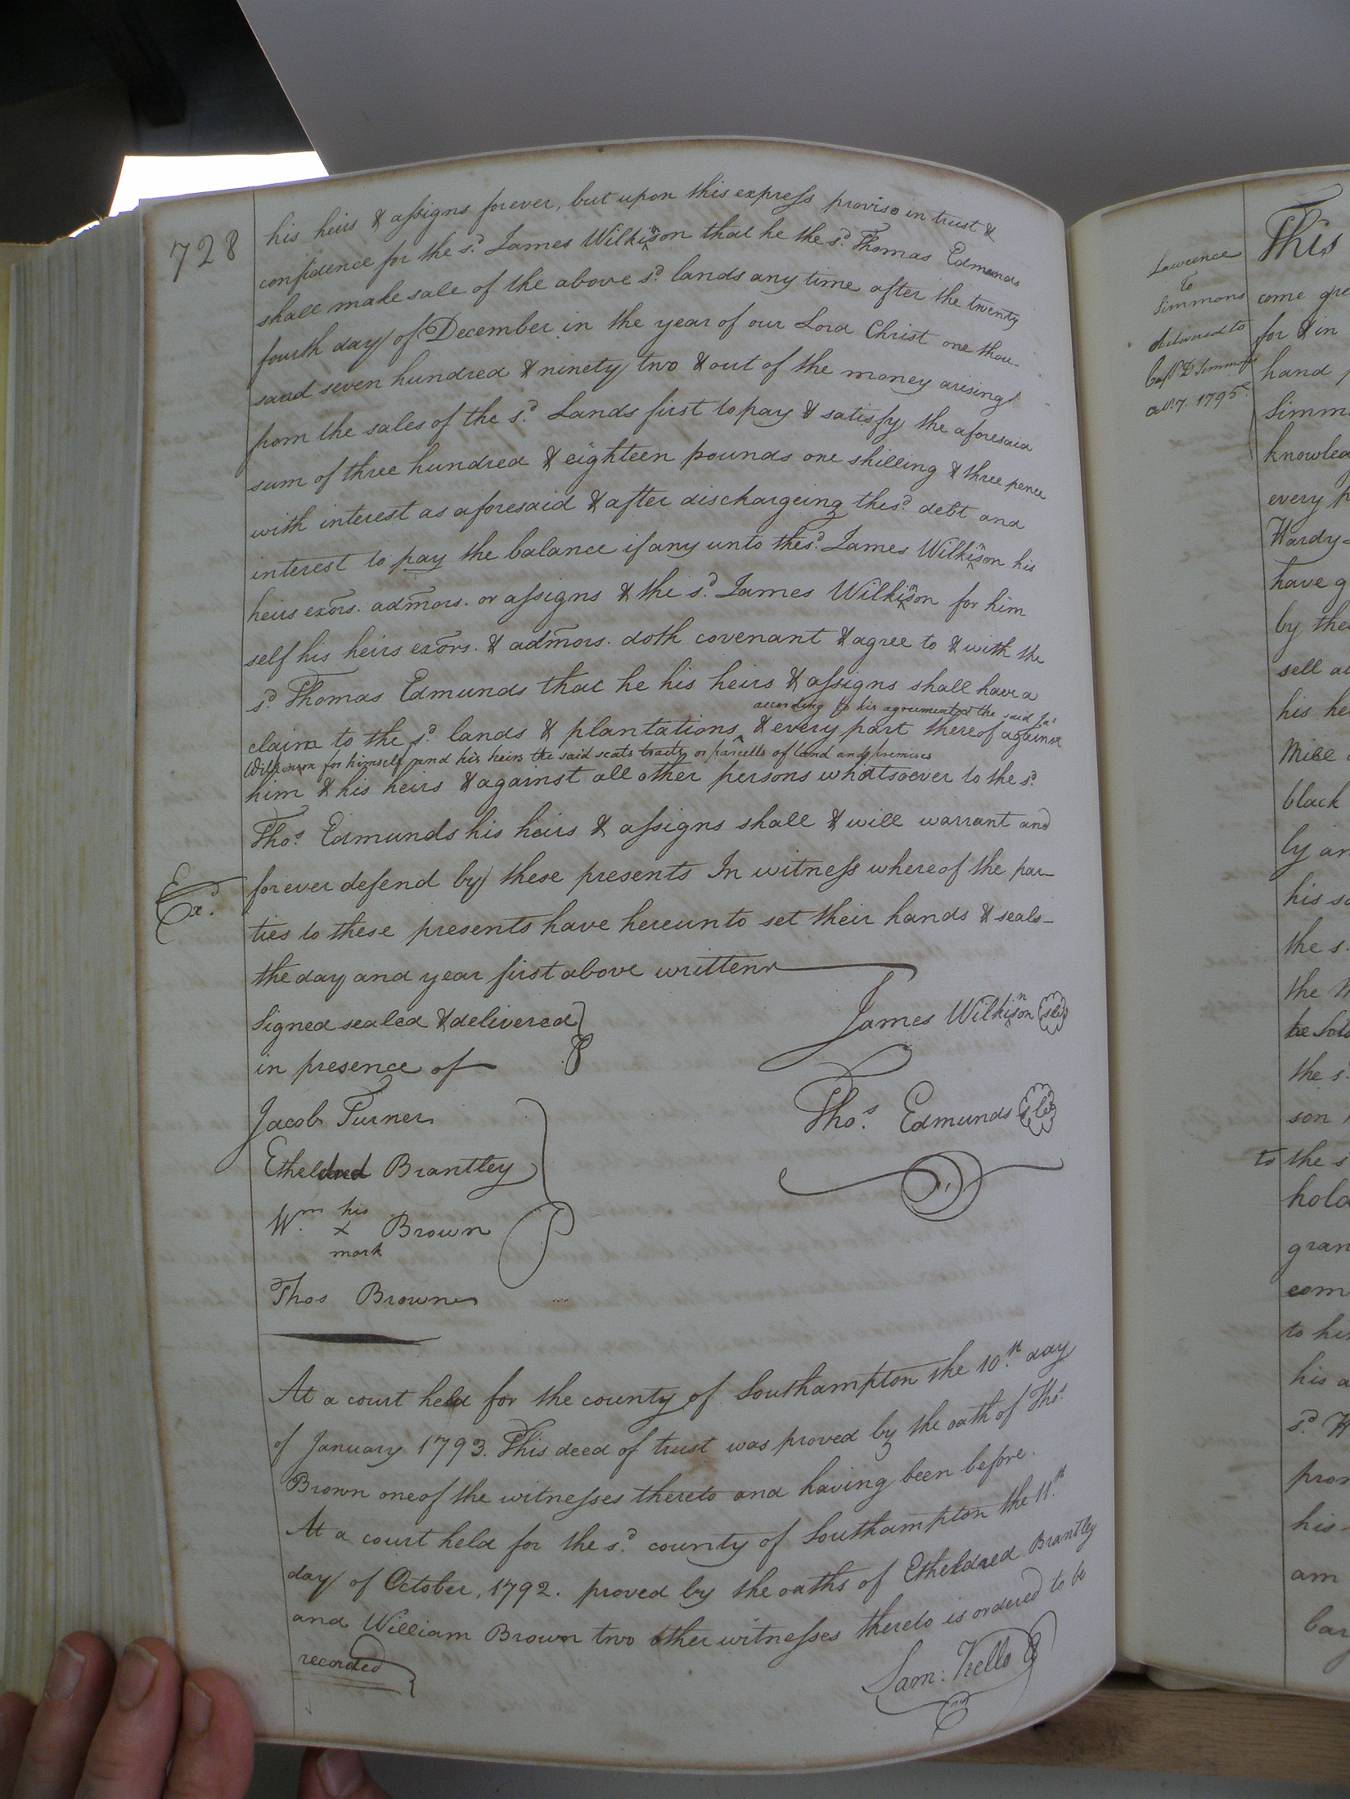 728
his heirs & assigns forever, but upon this express proviso in trust &
confidence for the sd. James Wilkinson that he the sd. Thomas Edmunds
shall make sale of the above sd. lands any time after the twenty
fourth day of December in the year of our Lord Christ one thou-
sand seven hundred & ninety two & out of the money arising
from the sales of the sd. Lands first to pay & satisfy the aforesaid
sum of three hundred & eighteen pounds one shilling & three pence
with interest as aforesaid & after dischargeing the sd. debt and
interest to pay the balance if any unto the sd. James Wilkinson his
heirs exors. admors. or assigns & the sd. James Wilkinson for him
self his heirs exors. & admors. doth covenant & agree to & with the
sd. Thomas Edmunds that he his heirs & assigns shall have a
according to his agreement & the said Jas.
claim to the sd. lands & plantations ^ & every part thereof against
Wilkinson for himself and his heirs the said seats tracts or parcells of land and premises
him & his heirs & against all other persons whatsoever to the sd.
Thos. Edmunds his heirs & assigns shall & will warrant and
forever defend by these presents In witness whereof the par-
Exd.
ties to these presents have hereunto set their hands & seals-
the day and year first above written
Signed sealed & delivered
in presence of
James Wilkinson
Jacob Turner
Thos. Edmunds
Etheldred Brantley
Wm. his x mark Brown
Thos Brown
At a court held for the county of Southampton the 10th. day
of January 1793. This deed of trust was proved by the oath of Thos.
Brown one of the witnesses thereto and having been before.
At a court held for the sd. county of Southampton the 11th.
day of October, 1792. proved by the oaths of Etheldred Brantley
and William Brown two other witnesses thereto is ordered to be
recorded
Sam: Kello
Lawrence
to
Simmons
delivered to
Simmons
7. 1795
This
come
for & in
hand
Simm
knowled
every
Hardy
have g
by the
sell
his he
Mill
black
ly an
his
the s
the
be sold
the s
son
to the s
hold
gran
com
to hi
his a
sd.
pro
his
am
bar